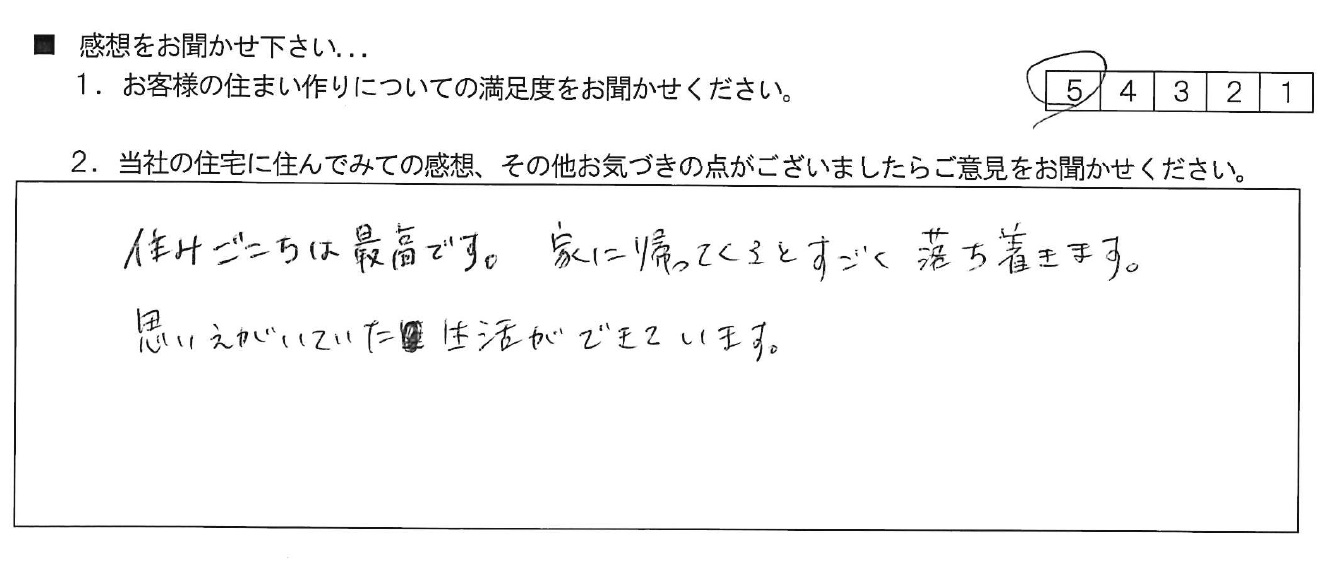 ■ 感想をお聞かせ下さい...
1．お客様の住まい作りについての満足度をお聞かせください。
5 4 3 2 1
2．当社の住宅に住んでみての感想、その他お気づきの点がございましたらご意見をお聞かせください。
住みごこちは最高です。 家に帰ってくるとすごく落ち着きます。
思いえがいていた生活ができています。